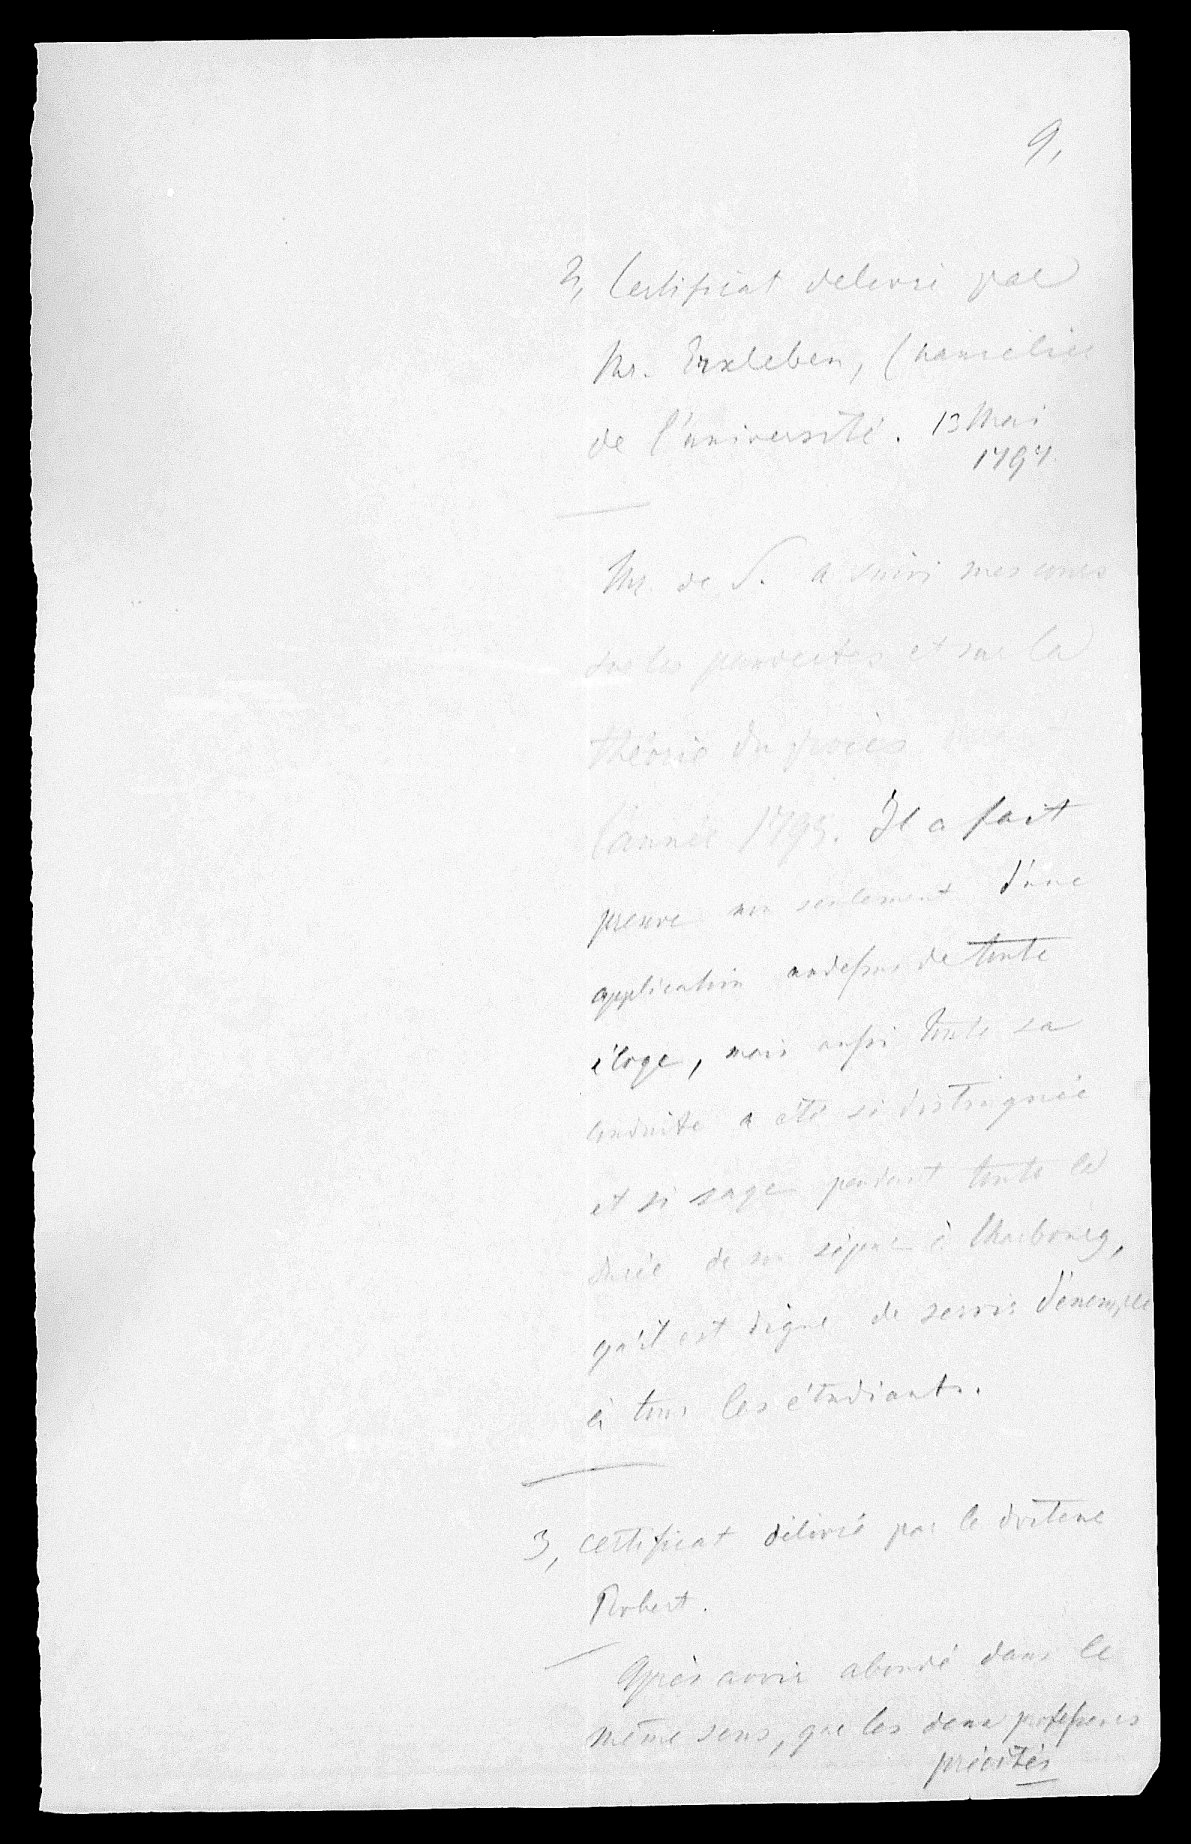 9,
2, Certificat delivré par
Mr. Erxleben, Chancelier
de l'université. 13 Mai
1797.
Mr. de S. a suivi mes cours
sur les pandectes et sur la
théorie du procès
l'année 1795. Il a fait
preuve non seulement d'une
application audessus de toute
éloge, mais aussi toute sa
conduite a été si distinguée
et si sage pendant toute la
durée de son séjour à Marbourg,
qu'il est digne de servir d'exemple
à tous les étudiants.
3, certificat délivré par le docteur
Robert.
Après avoir abondé dans le
même sens, que les deux professeurs
précités